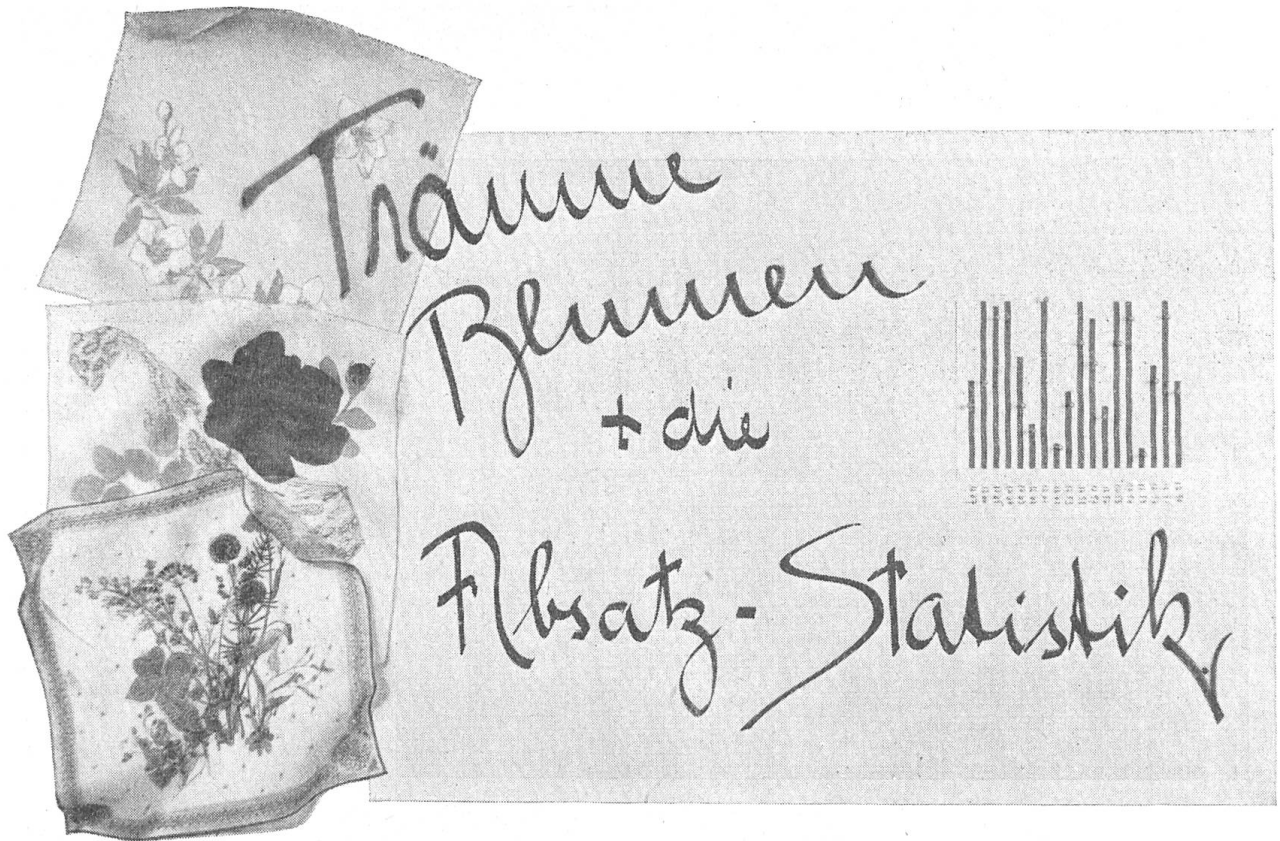 Träume
Blumen
+ die
Absatz-Statistik